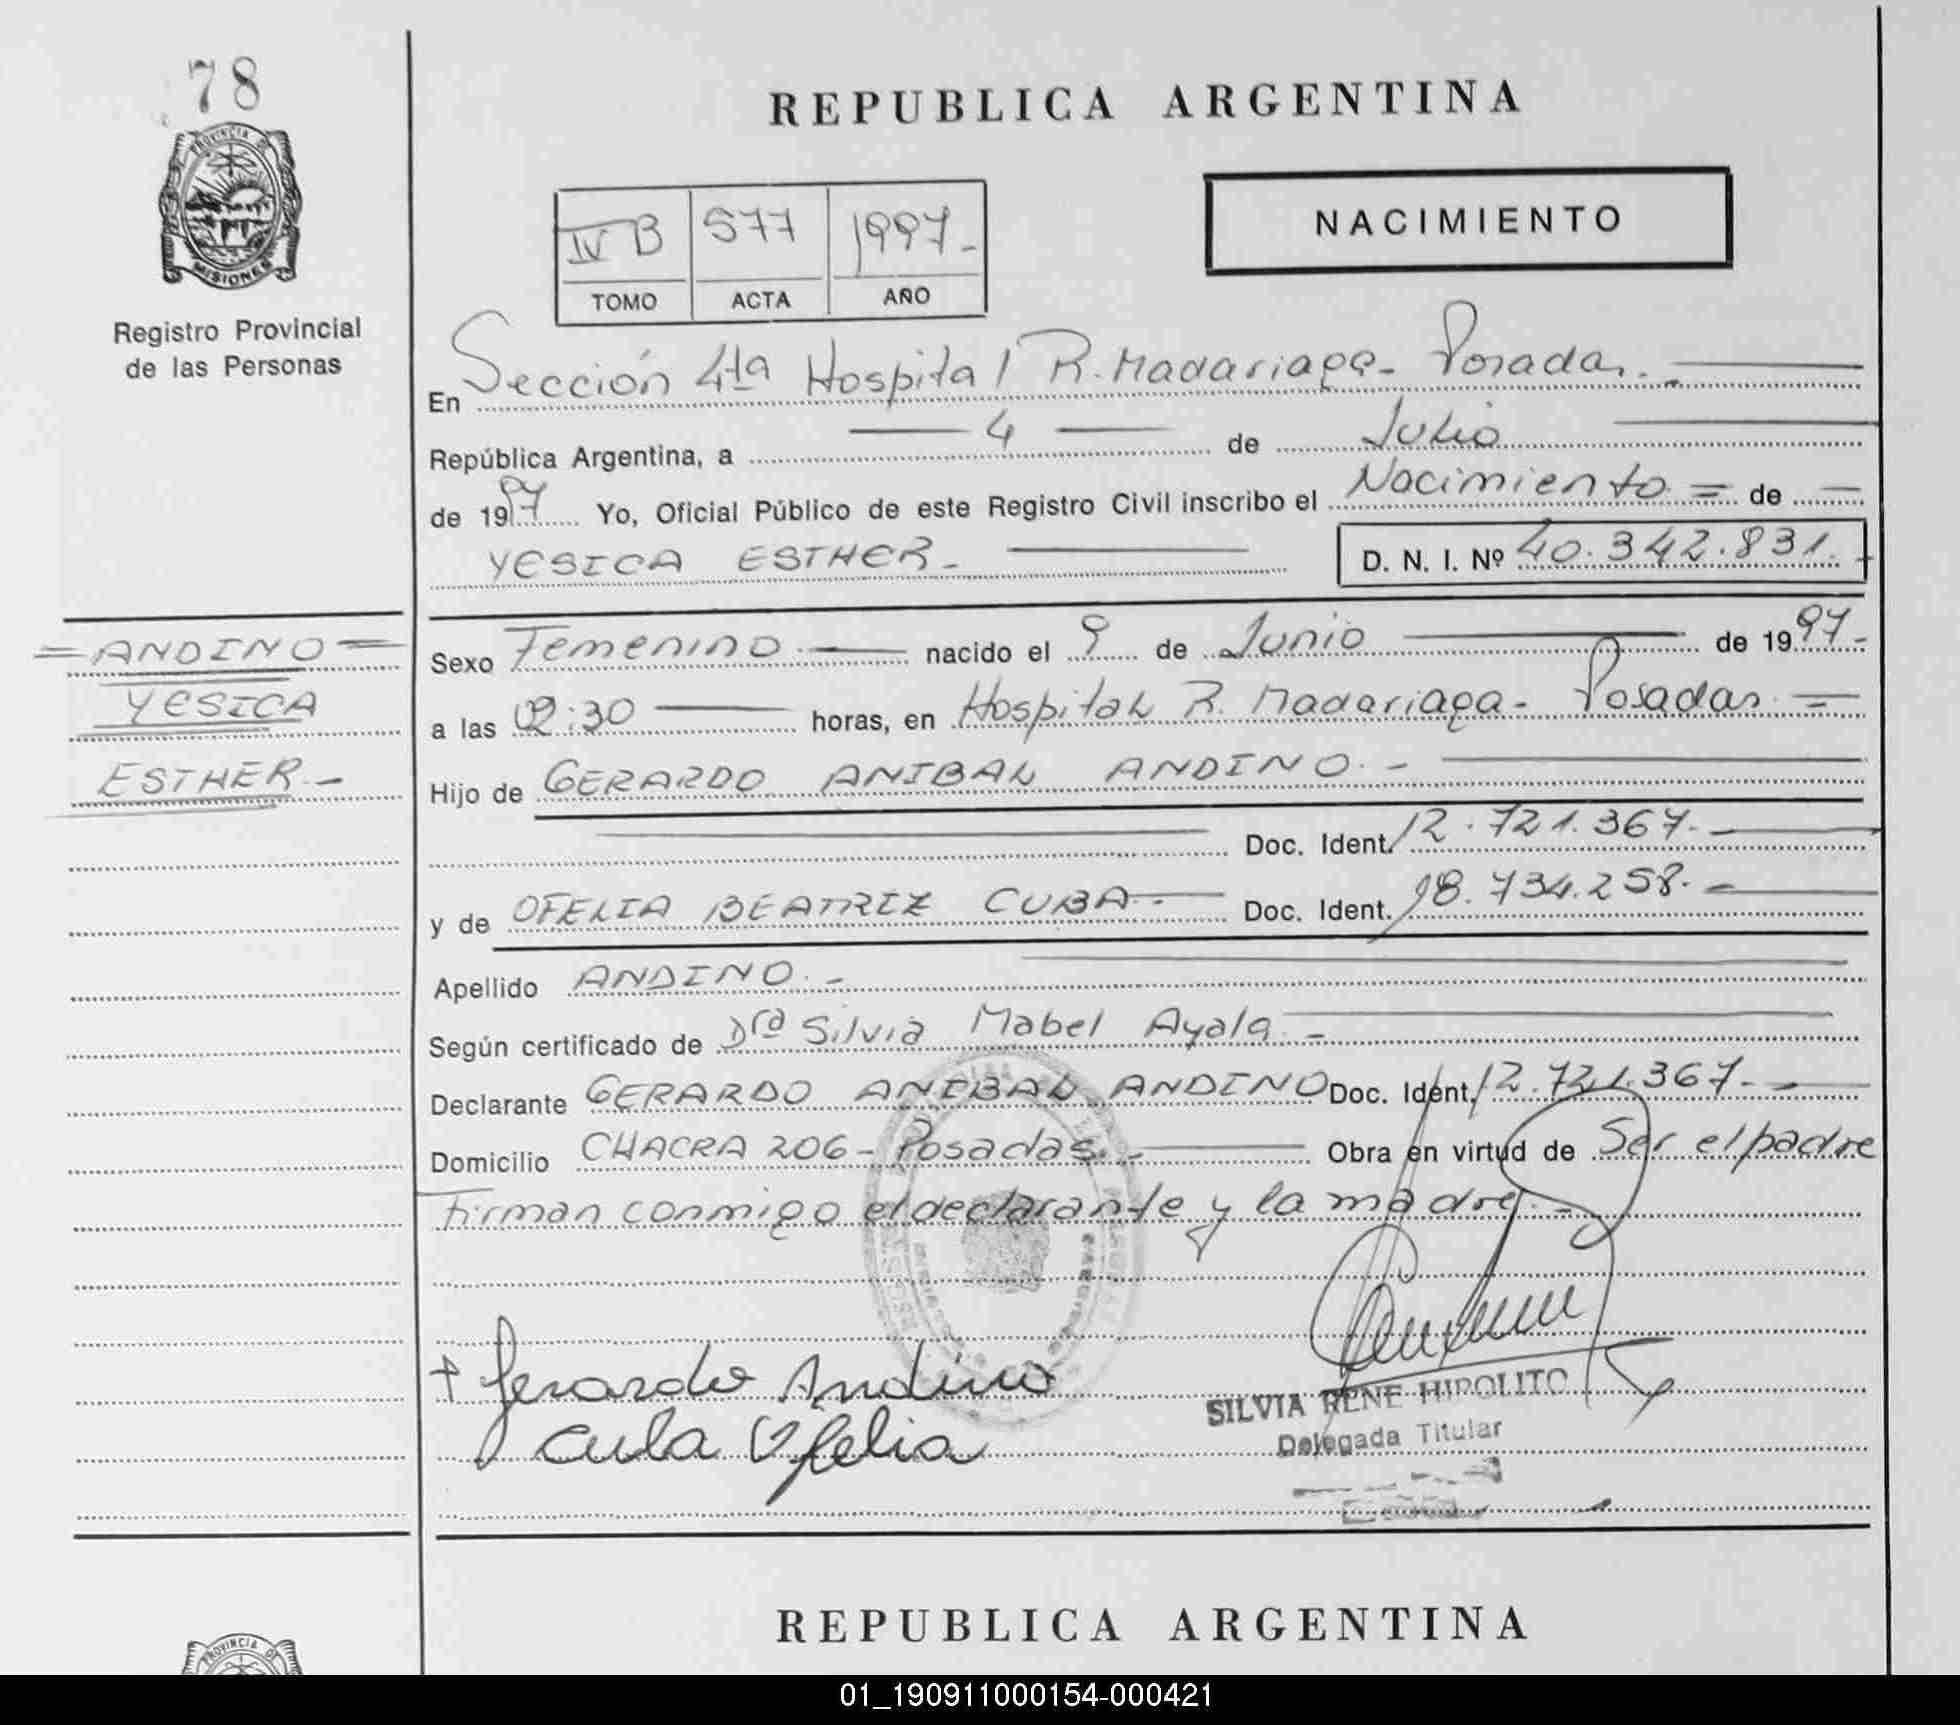 78
PROVINCIA DE
MISIONES
Registro Provincial
de las Personas
REPUBLICA ARGENTINA
IV B 577 1997-
TOMO ACTA AÑO
NACIMIENTO
En Sección 4ta Hospital R. Madariaga- Posadas.
República Argentina, a 4 de Julio
de 1997 Yo, Oficial Público de este Registro Civil inscribo el Nacimiento = de
YESICA ESTHER- D. N. I. Nº 40.342.831.
=ANDINO=
YESICA
ESTHER.-
Sexo Femenino nacido el 9 de Junio de 1997-
a las 02:30 horas, en Hospital R. Madariaga- Posadas =
Hijo de GERARDO ANIBAL ANDINO.-
Doc. Ident. 12.721.367.-
y de OFELIA BEATRIZ CUBA.- Doc. Ident. 18.734.258.-
Apellido ANDINO.-
Según certificado de Dra Silvia Mabel Ayala.-
Declarante GERARDO ANIBAL ANDINO Doc. Ident. 12.721.367.-
Domicilio CHACRA 206- Posadas.- Obra en virtud de Ser el padre
Firman conmigo el declarante y la madre.-
+ Gerardo Andino
Cuba Ofelia
SILVIA RENE HIPOLITO
Delegada Titular
REPUBLICA ARGENTINA
PROVINCIA DE
01_190911000154-000421